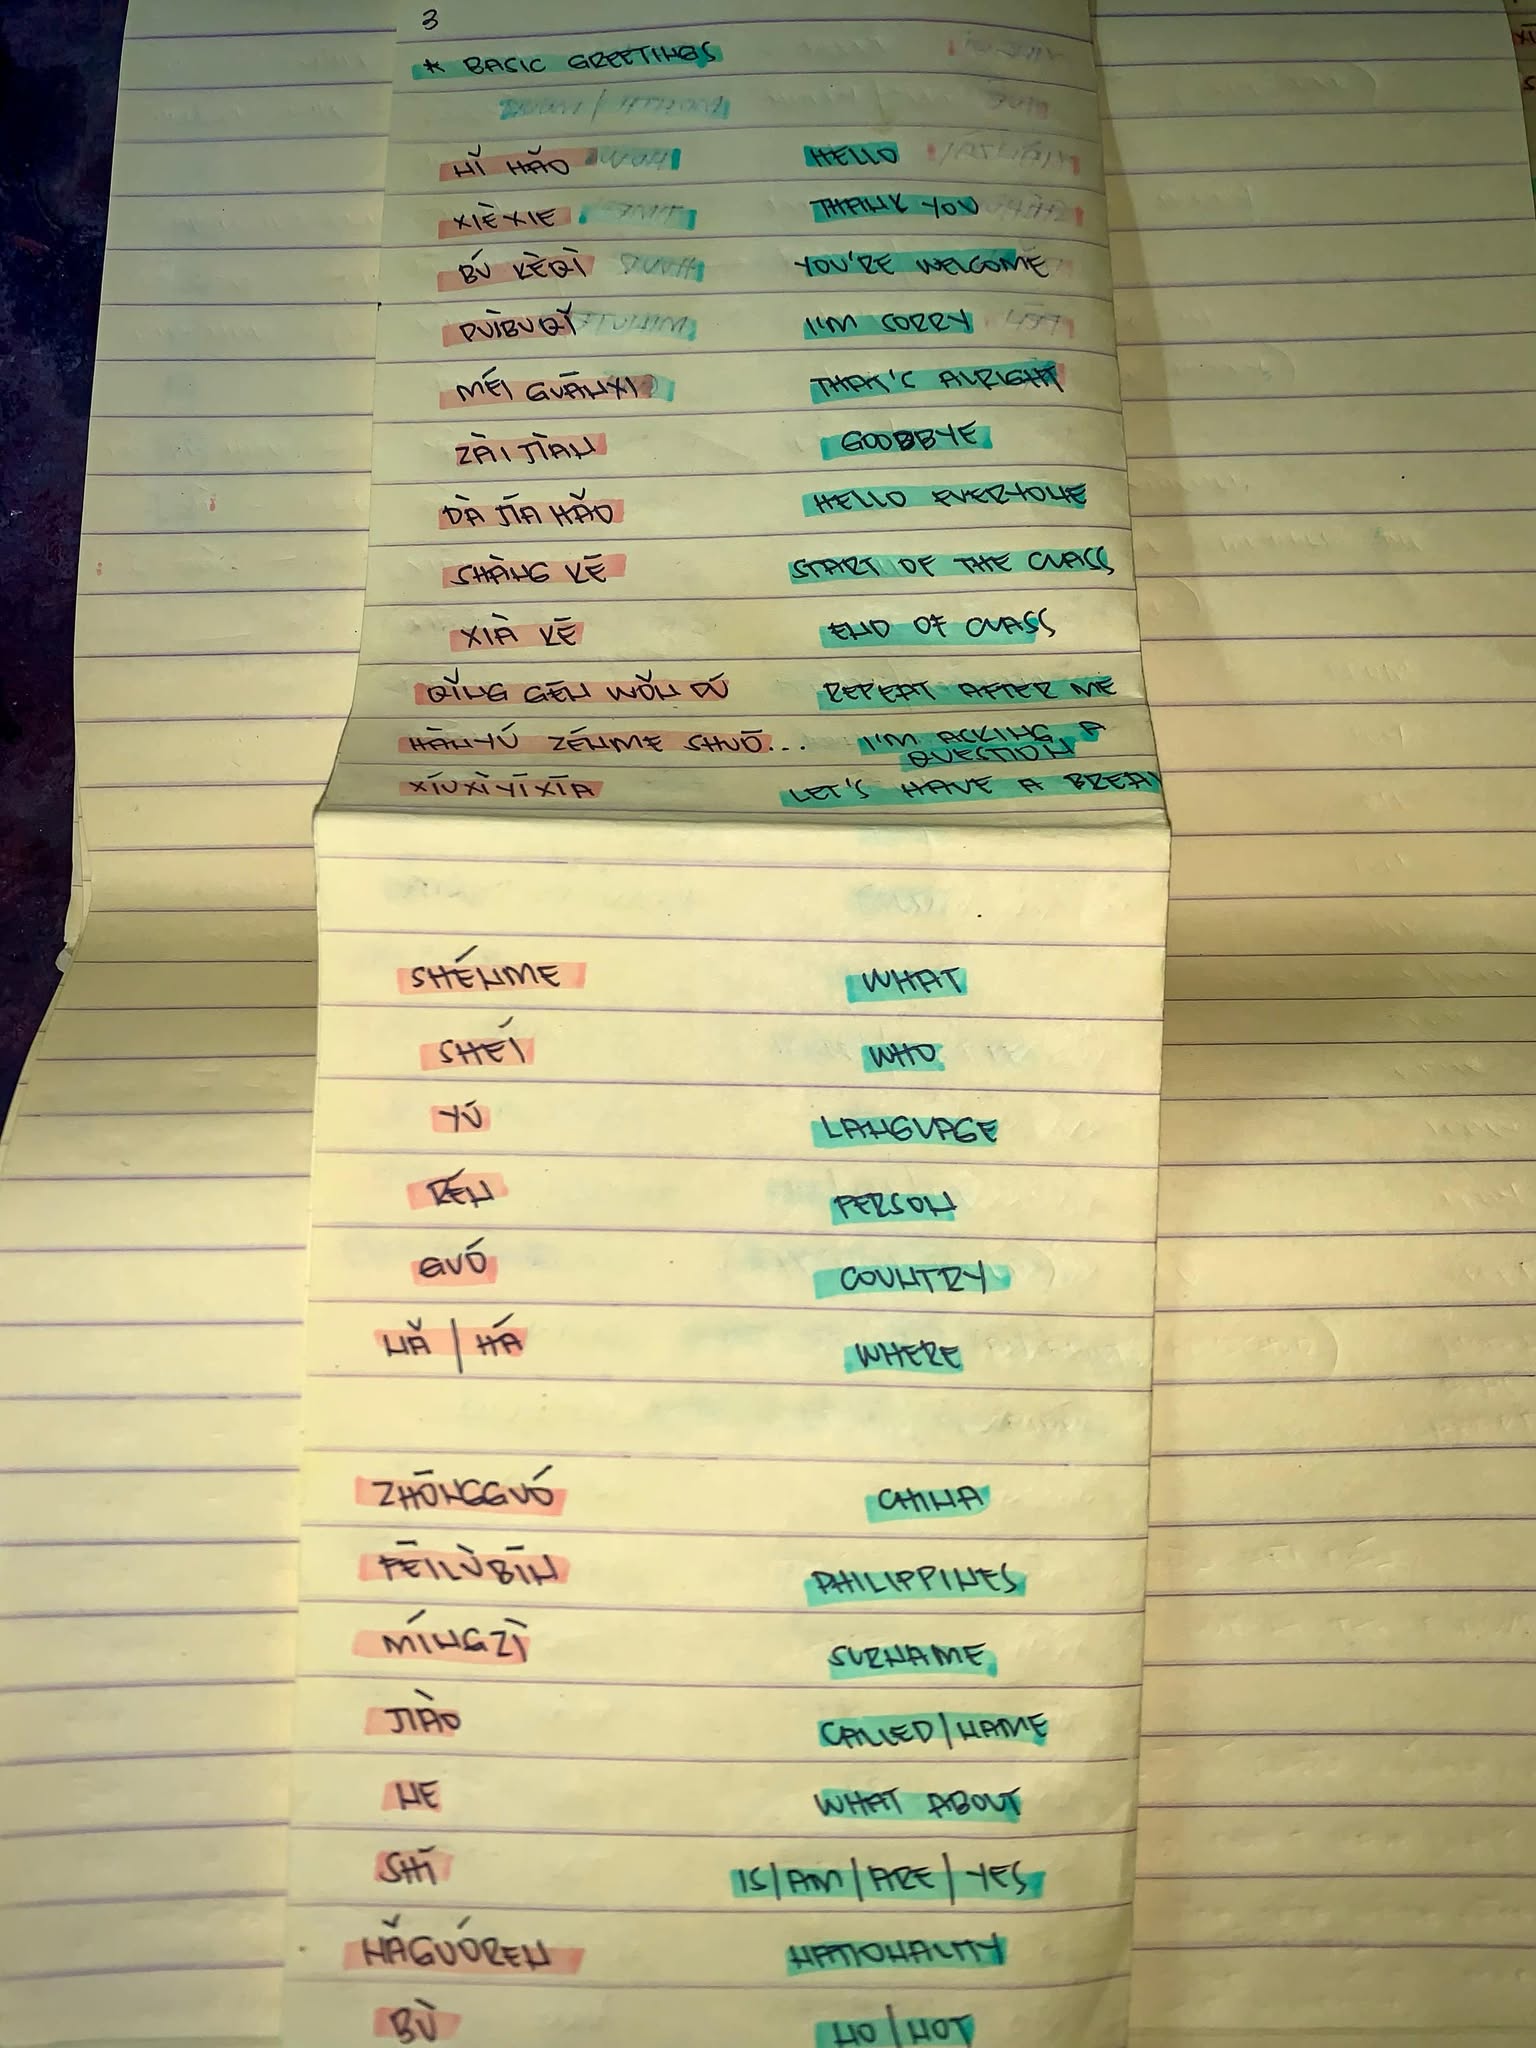 3
* BASIC GREETINGS
NǏ HǍO HELLO
XIÈXIE THANK YOU
BÚ KÈQÌ YOU'RE WELCOME
DUÌBUQǏ I'M SORRY
MÉI GUĀNXI THAT'S ALRIGHT
ZÀI JIÀN GOODBYE
DÀ JĪA HǍO HELLO EVERYONE
SHÀNG KÈ START OF THE CLASS
XIÀ KÈ END OF CLASS
QǏNG GĒN WǑN DÚ REPEAT AFTER ME
HÀNYÚ ZÉNME SHUŌ... I'M ASKING A
QUESTION
XĪUXÌ YĪ XĪA LET'S HAVE A BREAK
SHÉNME WHAT
SHEÍ WHO
YÚ LANGUAGE
RÉN PERSON
GUÓ COUNTRY
NǍ | NÁ WHERE
ZHŌNGGUÓ CHINA
FĒILÙBĪN PHILIPPINES
MÍNGZÌ SURNAME
JIÀO CALLED/NAME
NE WHAT ABOUT
SHĪ IS/AM/ARE/YES
NǍGUÓREN NATIONALITY
BÙ NO/NOT